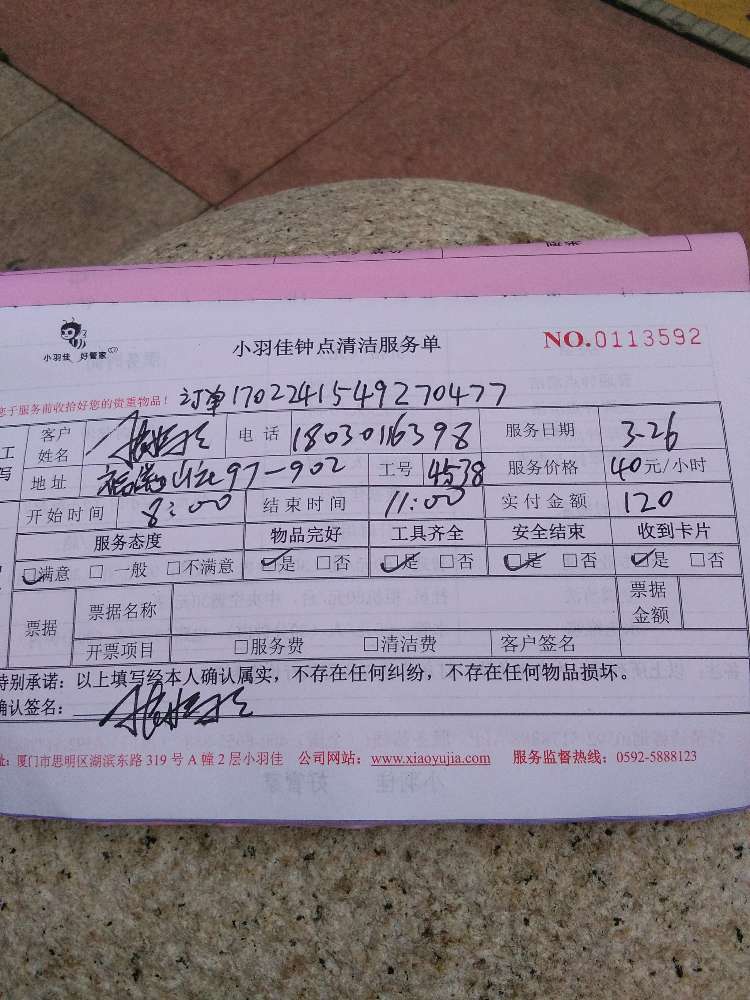 小羽佳 好管家
小羽佳钟点清洁服务单
NO.0113592
您于服务前收拾好您的贵重物品！ 订单1702241549270477
客户姓名 电话 18030116398 服务日期 3.26
地址 97-902 工号 4538 服务价格 40元/小时
开始时间 8:00 结束时间 11:00 实付金额 120
服务态度 物品完好 工具齐全 安全结束 收到卡片
☑满意 □一般 □不满意 ☑是 □否 ☑是 □否 ☑是 □否 ☑是 □否
票据 票据名称 票据金额
开票项目 □服务费 □清洁费 客户签名
特别承诺：以上填写经本人确认属实，不存在任何纠纷，不存在任何物品损坏。
确认签名：
址：厦门市思明区湖滨东路 319 号 A 幢 2 层小羽佳 公司网站：www.xiaoyujia.com 服务监督热线：0592-5888123